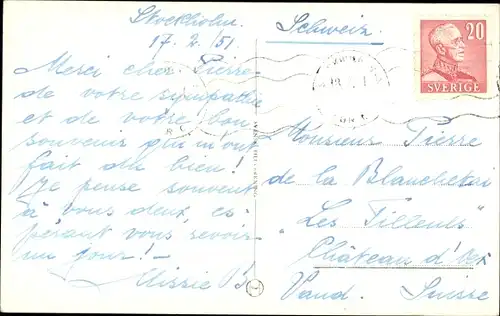 Stockholm.
17.2./51.
Merci cher Pierre
de votre sympathie
et de votre bon
souvenir qui m'ont
fait du bien!
Je pense souvent
à vous deux, es-
pérant vous revoir
un jour! -
Missie B
Schweiz.
20
SVERIGE
Monsieur Pierre
de la Blanchetai
"Les Tilleuls"
Château d'Oex
Vaud. Suisse